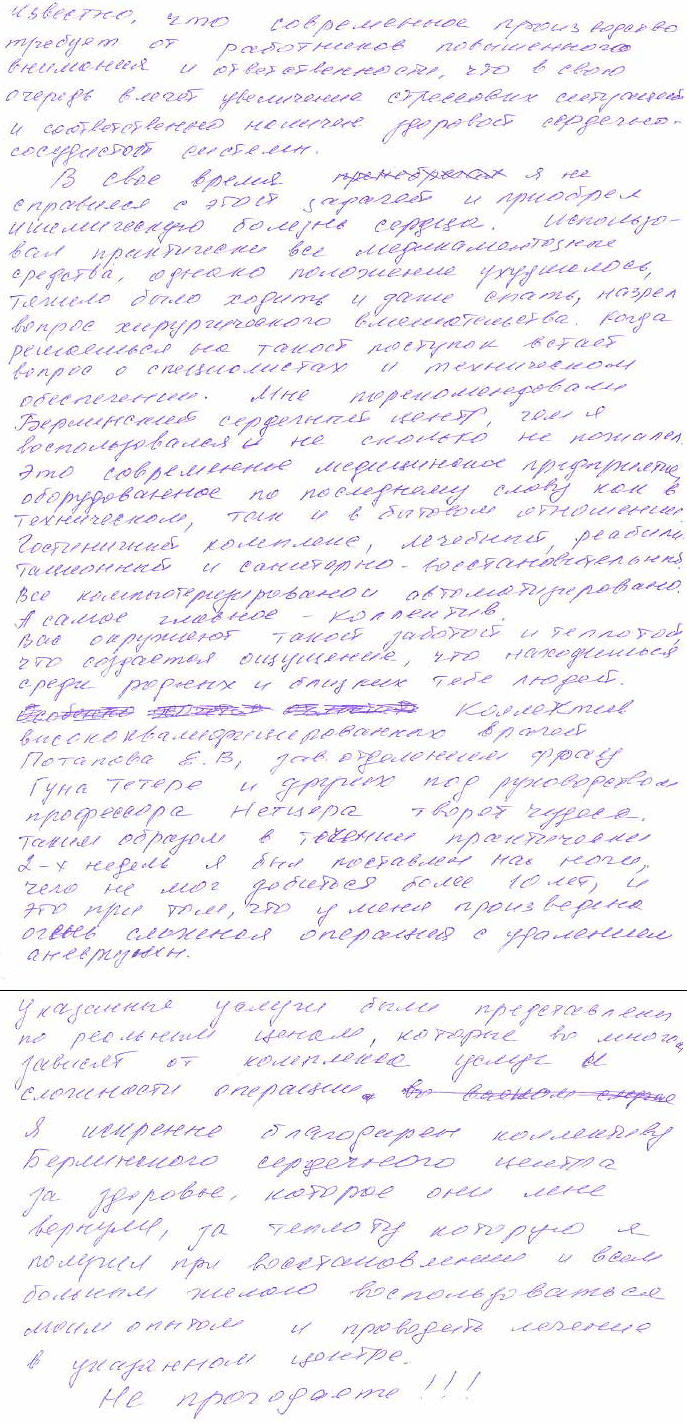 Известно, что современное производство
требует от работников повышенного
внимания и ответственности, что в свою
очередь влечет увеличение стрессовых ситуаций
и соответственно наличие здоровой сердечно-
сосудистой системы.
В свое время я не
справился с этой задачей и приобрел
ишемическую болезнь сердца. Использо-
вал практически все медикаментозные
средства, однако положение ухудшалось,
тяжело было ходить и даже спать, назрел
вопрос хирургического вмешательства. Когда
решаешься на такой поступок встает
вопрос о специалистах и техническом
обеспечении. Мне порекомендовали
Берлинский сердечный центр, чем я
воспользовался и не сколько не пожалел.
Это современное медицинское предприятие,
оборудованное по последнему слову как в
техническом, так и в бытовом отношении.
Гостиничный комплекс, лечебный, реабили
тационный и санаторно-восстановительный.
Все компьютеризировано и автоматизировано.
А самое главное - коллектив.
Вас окружают такой заботой и теплотой,
что создается ощущение, что находишься
среди родных и близких тебе людей.
Коллектив
высококвалифицированных врачей
Потапова Е.В, зав.отделением фрау
Гуна Тетере и других под руководством
профессора Нетцера творят чудеса.
Таким образом в течении практически
2-х недель я был поставлен на ноги,
чего не мог добиться более 10 лет, и
это при том, что у меня произведена
очень сложная операция с удалением
аневризмы.
Указанные услуги были представлены
по реальным ценам, которые во многом
зависят от комплекса услуг и
сложности операции.
Я искренне благодарен коллективу
Берлинского сердечного центра
за здоровье, которое они мне
вернули, за теплоту которую я
получил при восстановлении и всем
больным желаю воспользоваться
моим опытом и проводить лечение
в указанном центре.
Не прогадаете!!!